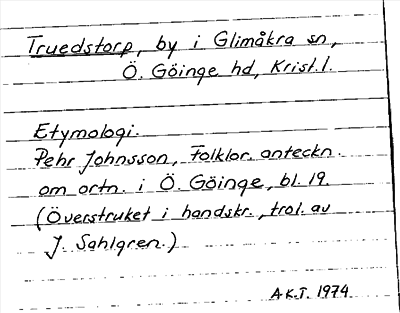 Truedstorp, by i Glimåkra sn,
Ö. Göinge hd, Krist. l.
Etymologi.
Pehr Johnsson, Folklor. anteckn.
om ortn. i Ö. Göinge, bl. 19.
(Överstruket i handskr., trol. av
J. Sahlgren.)
A K.T. 1974